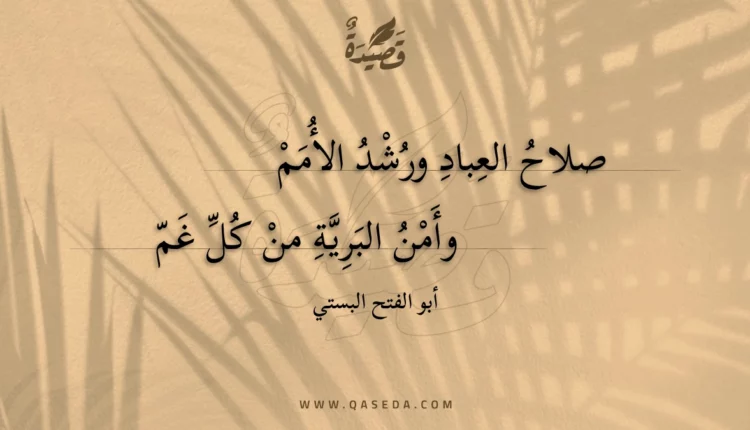 قَصِيْدَةٌ
صلاحُ العِبادِ ورُشْدُ الأُمَمْ
وأَمْنُ البَرِيَّةِ منْ كُلِّ غَمّ
أبو الفتح البستي
WWW.QASEDA.COM